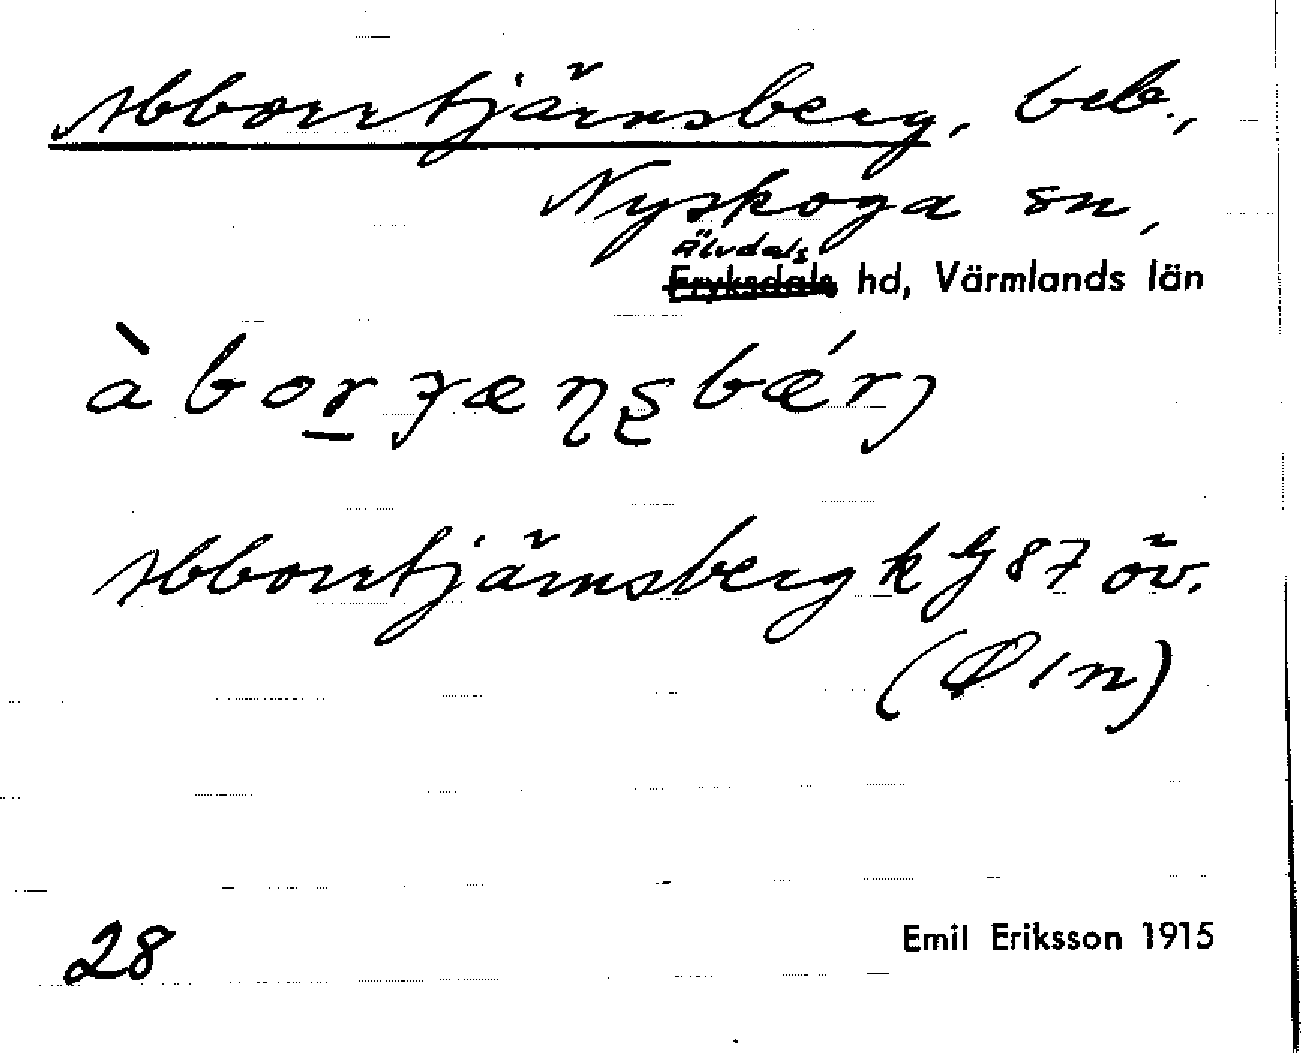 Abborrtjärnsberg, beb.,
Nyskoga sn,
Älvdals
Fryksdals hd, Värmlands län
Abborrtjärnsberg k G 87 öv.
28
Emil Eriksson 1915